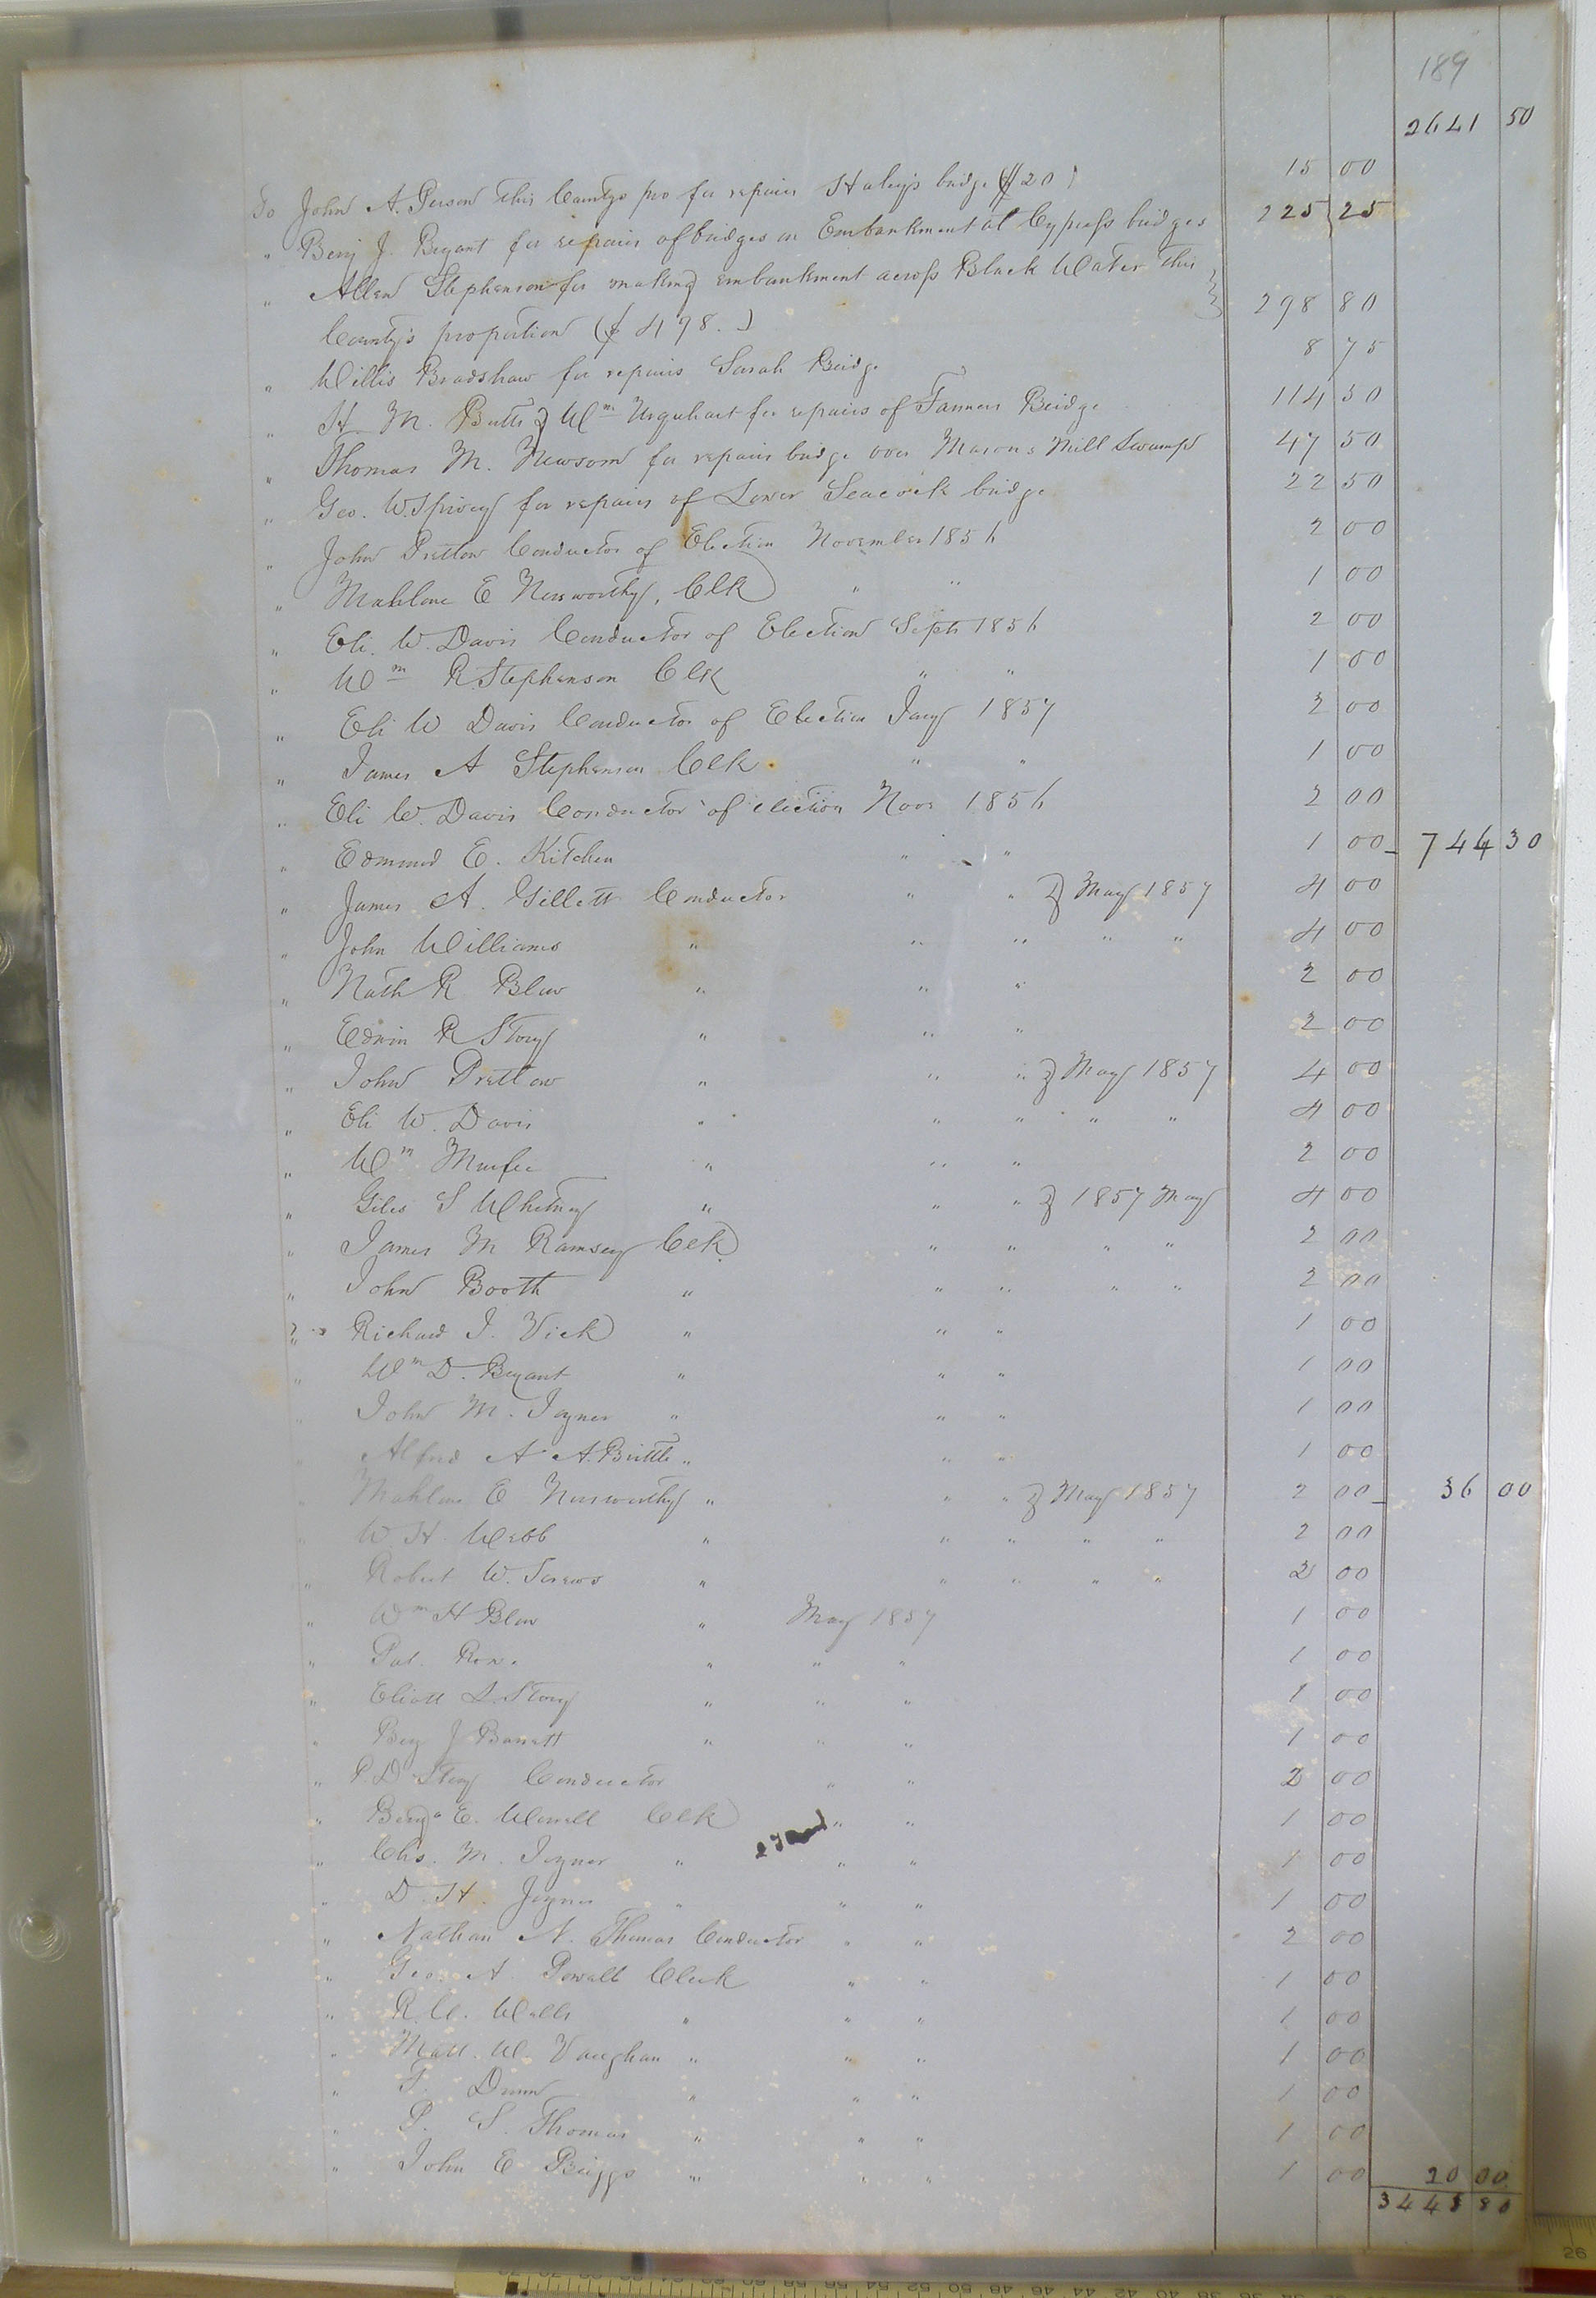 189
2641 50
To John A. Person this Countys pro for repairs Haleys bridge ($20) 15 00
" Benj J. Bryant for repairs of bridges on Embankment at Cypress bridges 225 25
" Allen Stephenson for making embankment across Black Water this
County's proportion ($498.) 298 80
" Willis Bradshaw for repairs Sarah Bridge 8 75
" H. M. Butts & Wm Urquhart for repairs of Farmers Bridge 114 50
" Thomas M. Newsom for repairs bridge over Masons Mill Swamp 47 50
" Geo. W. Spivey for repairs of Lower Seacock bridge 22 50
" John Pretlow Conductor of Election November 1856 2 00
" Mahlone E Norsworthy, Clk " " 1 00
" Eli. W. Davis Conductor of Election Septr 1856 2 00
" Wm R Stephenson Clk " " 1 00
" Eli W Davis Conductor of Election Jany 1857 2 00
" James A Stephenson Clk " " 1 00
" Eli W. Davis Conductor of election Novr 1856 2 00
" Edmund E. Kitchen " " 1 00 744 30
" James A. Gillett Conductor " " & May 1857 4 00
" John Williams " " " " " 4 00
" Nath R Blow " " " 2 00
" Edwin R Story " " " 2 00
" John Pretlow " " " & May 1857 4 00
" Eli W. Davis " " " " " 4 00
" Wm Murfee " " " 2 00
" Giles S Whitney " " " & 1857 May 4 00
" James M Ramsey Clk " " " " 2 00
" John Booth " " " " " 2 00
" Richard J. Vick " " " 1 00
" Wm D. Bryant " " " 1 00
" John M. Joyner " " " 1 00
" Alfred A. A. Brittle " " " 1 00
" Mahlone E Norsworthy " " " & May 1857 2 00 36 00
" W H Webb " " " " " 2 00
" Robert W. Screws " " " " " 2 00
" Wm H Blow " May 1857 1 00
" Pat. Rowe " " " 1 00
" Eliott L. Story " " " 1 00
" Benj J Barrett " " " 1 00
" P. D Story Conductor " " 2 00
" Benja E. Worrell Clk " " 1 00
" Chs. M. Joyner " " " 1 00
" D. H. Joyner " " " 1 00
" Nathan N. Thomas Conductor " " 2 00
" Geo. A. Powell Clerk " " 1 00
" R. W. Wells " " " 1 00
" Matt. W. Vaughan " " " 1 00
" T. Drew " " " 1 00
" P. S. Thomas " " " 1 00
" John E Briggs " " " 1 00 20 00
3441 80